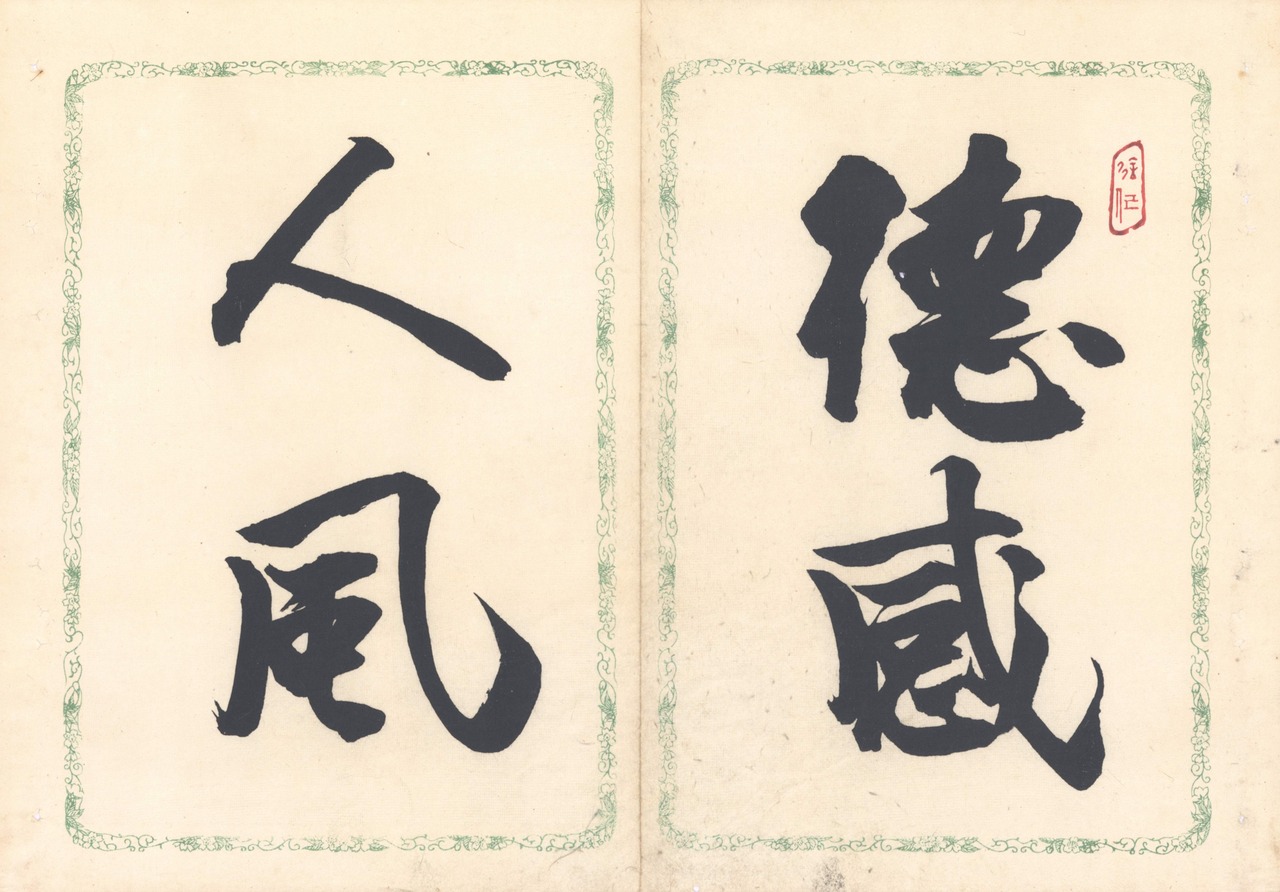 德感
人風